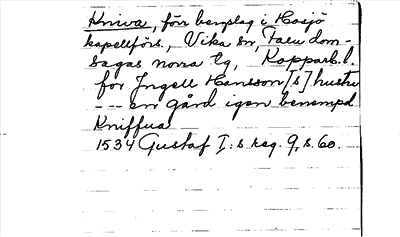 Kniva, förr bemslag i Hosjö
kapellförs., Vika sn, Falu dom-
sagas norra tg, Kopparb. l.
for Jngell Hansson [s] hustru
--- en gård igen benempd
Kniffua
1534 Gustaf I:s reg. 9, s. 60.